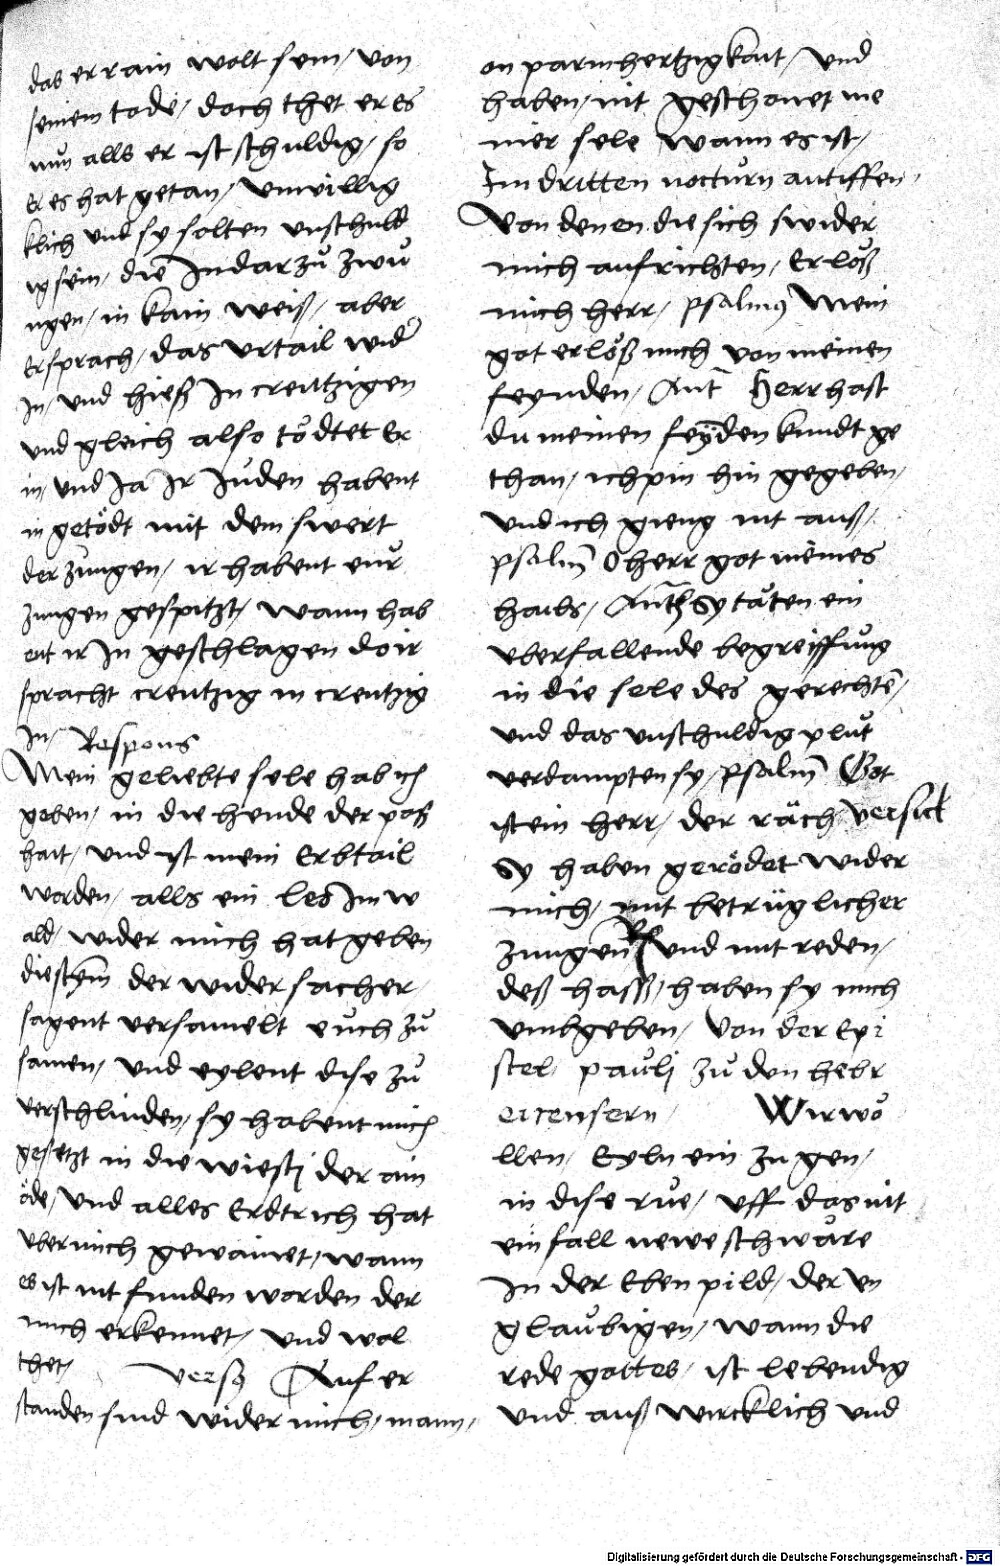 das er rain wolt sein / von
seinem tode / doch thet er es
nun alls er ist schuldig / so
Er es hat getan / unwillig
klich und sy solten unschuld
ig sein / die In dar zů zwů
ngen / in kain weiß / aber
Er sprach / das urtail wid
In / und hieß In creutzigen
und gleich also tödtet Er
in / und Ja Ir Juden habent
in getödt mit dem swert
der zungen / ir habent eur
zungen gespitzt / wann hab
ent ir In geschlagen do ir
spracht creutzig in creutzig
In / Respons
Mein geliebte sele hab ich
geben / in die hende der pos
hait / und ist mein Erbtail
worden / alls ein leo Im w
ald / wider mich hat geben
die stym der widersacher /
sagent versamelt euch zů
samen / und eylent dise zů
verschlinden / sy habent mich
gesetzt in die wiestj der ain
öde / und alles Erdtrich hat
uber mich gewainet / wann
es ist nit funden worden der
mich erkennet / und wol
thet / versz Auf er
standen sind wider mich / mann /
on parmhertzigkait / und
haben / nit geschonet me
iner sele wann es ist /
Im dritten nocturn antiffen /
Von denen die sich swider
mich aufrichten / Erlöß
mich herr / psalmus Mein
got erlöß mich von meinen
feynden / Ant Herr hast
du meinen feyden kundt ge
than / ich pin hin gegeben /
und ich gieng nit auß /
psalm O herr got meines
hails / Ant Sy täten ein
uberfallende begreiffung
in die sele des gerechten /
und das unschuldig plut
verdampten sy / psalm Got
ist ein herr / der räch versickl
Sy haben gerödet wider
mich / mit betrüglicher
zungen Rs und mit reden /
deß hasß / haben sy mich
umbgeben / Von der Epi
stel / paulj zu den hebr
eiensern / Wir wö
llen / Eyln ein zu gen /
in dise rue / uff das nit
ein fall newe schwäre
In der Eben pild / der un
glaubigen / wann die
rede gottes / ist lebendig
und auß wircklich und
Digitalisierung gefördert durch die Deutsche Forschungsgemeinschaft - DFG